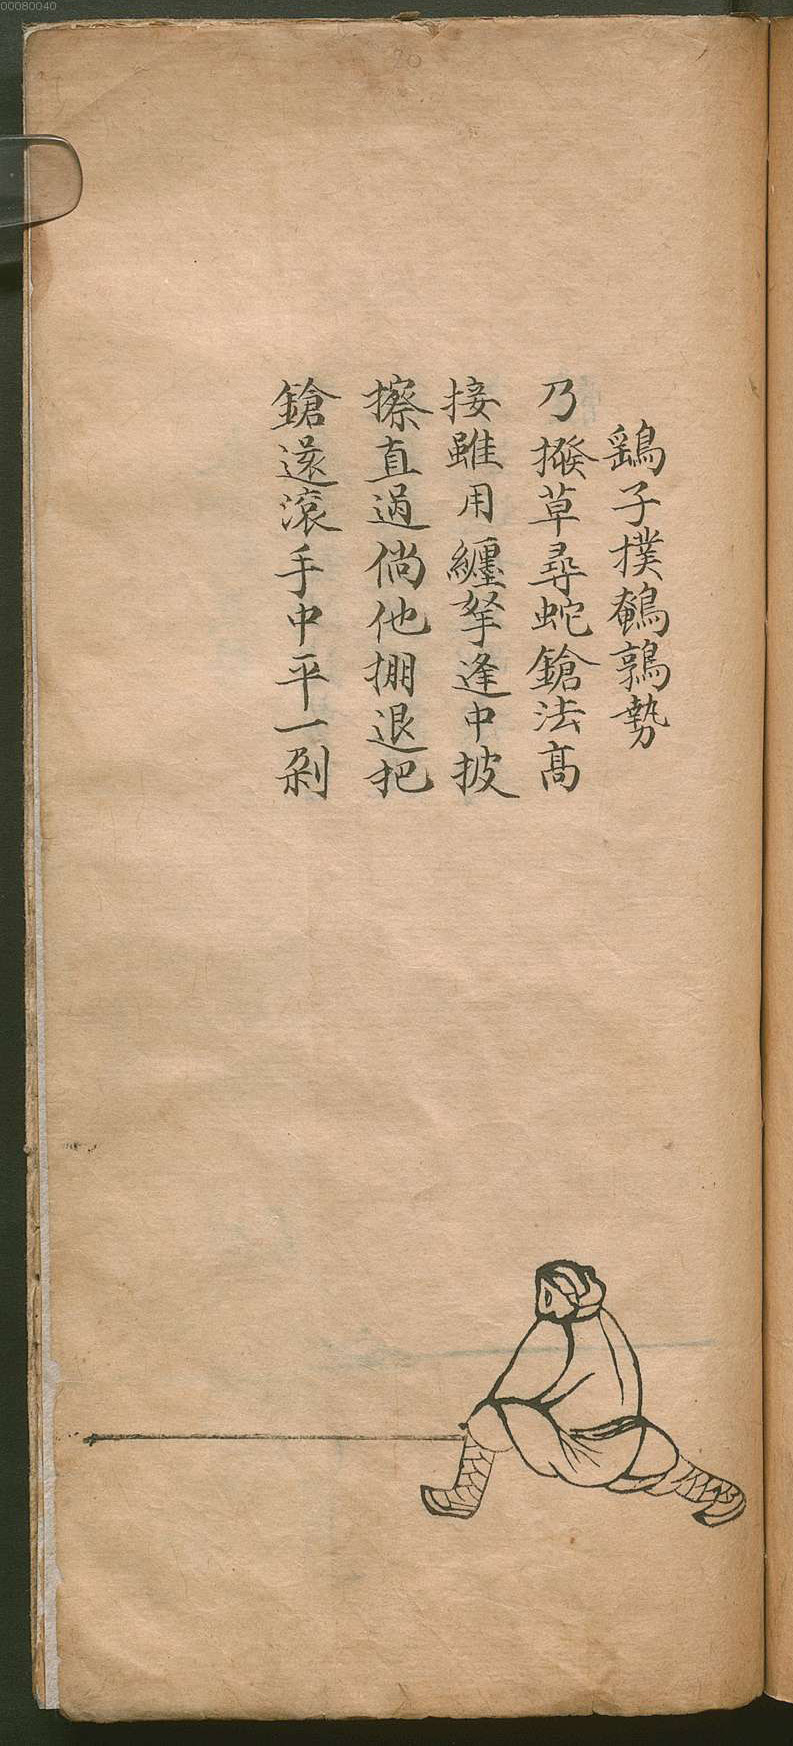 00080040
20
鷂子撲鵪鶉勢
乃撥草尋蛇鎗法高
接雖用纏拏逢中披
擦直過倘他掤退把
鎗還滾手中平一剁